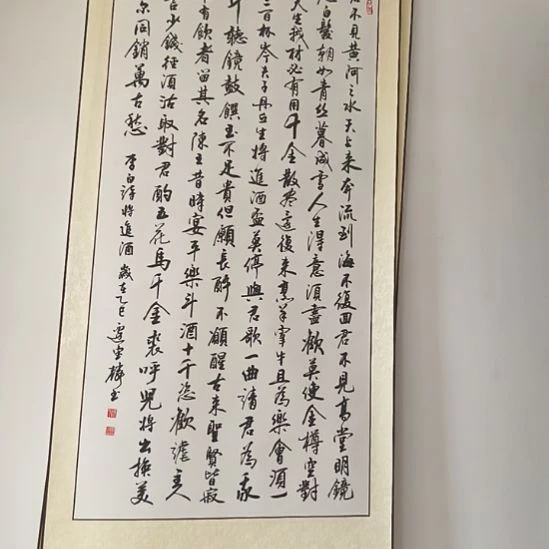 君不見黃河之水天上來奔流到海不復回君不見高堂明鏡
白髮朝如青絲暮成雪人生得意須盡歡莫使金樽空對
天生我材必有用千金散盡還復來烹羊宰牛且為樂會須一
三百杯岑夫子丹丘生將進酒盃莫停與君歌一曲請君為我
耳聽鐘鼓饌玉不足貴但願長醉不願醒古來聖賢皆寂
有飲者留其名陳王昔時宴平樂斗酒十千恣歡謔主人
言少錢徑須沽取對君酌五花馬千金裘呼兒將出換美
爾同銷萬古愁 李白詩將進酒 歲在乙巳 書